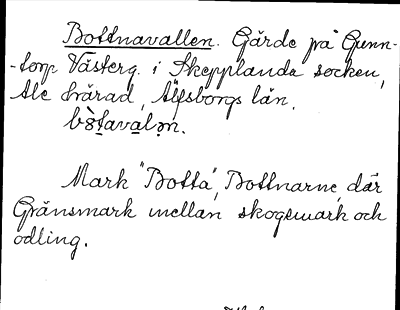 Bottnavallen. Gärde på Gunn-
-torp Västerg. i Skepplanda socken,
Ale härad, Älfsborgs län.
bòtavalən.
Mark "Botta", Bottnarne, där
Gränsmark mellan skogsmark och
odling.